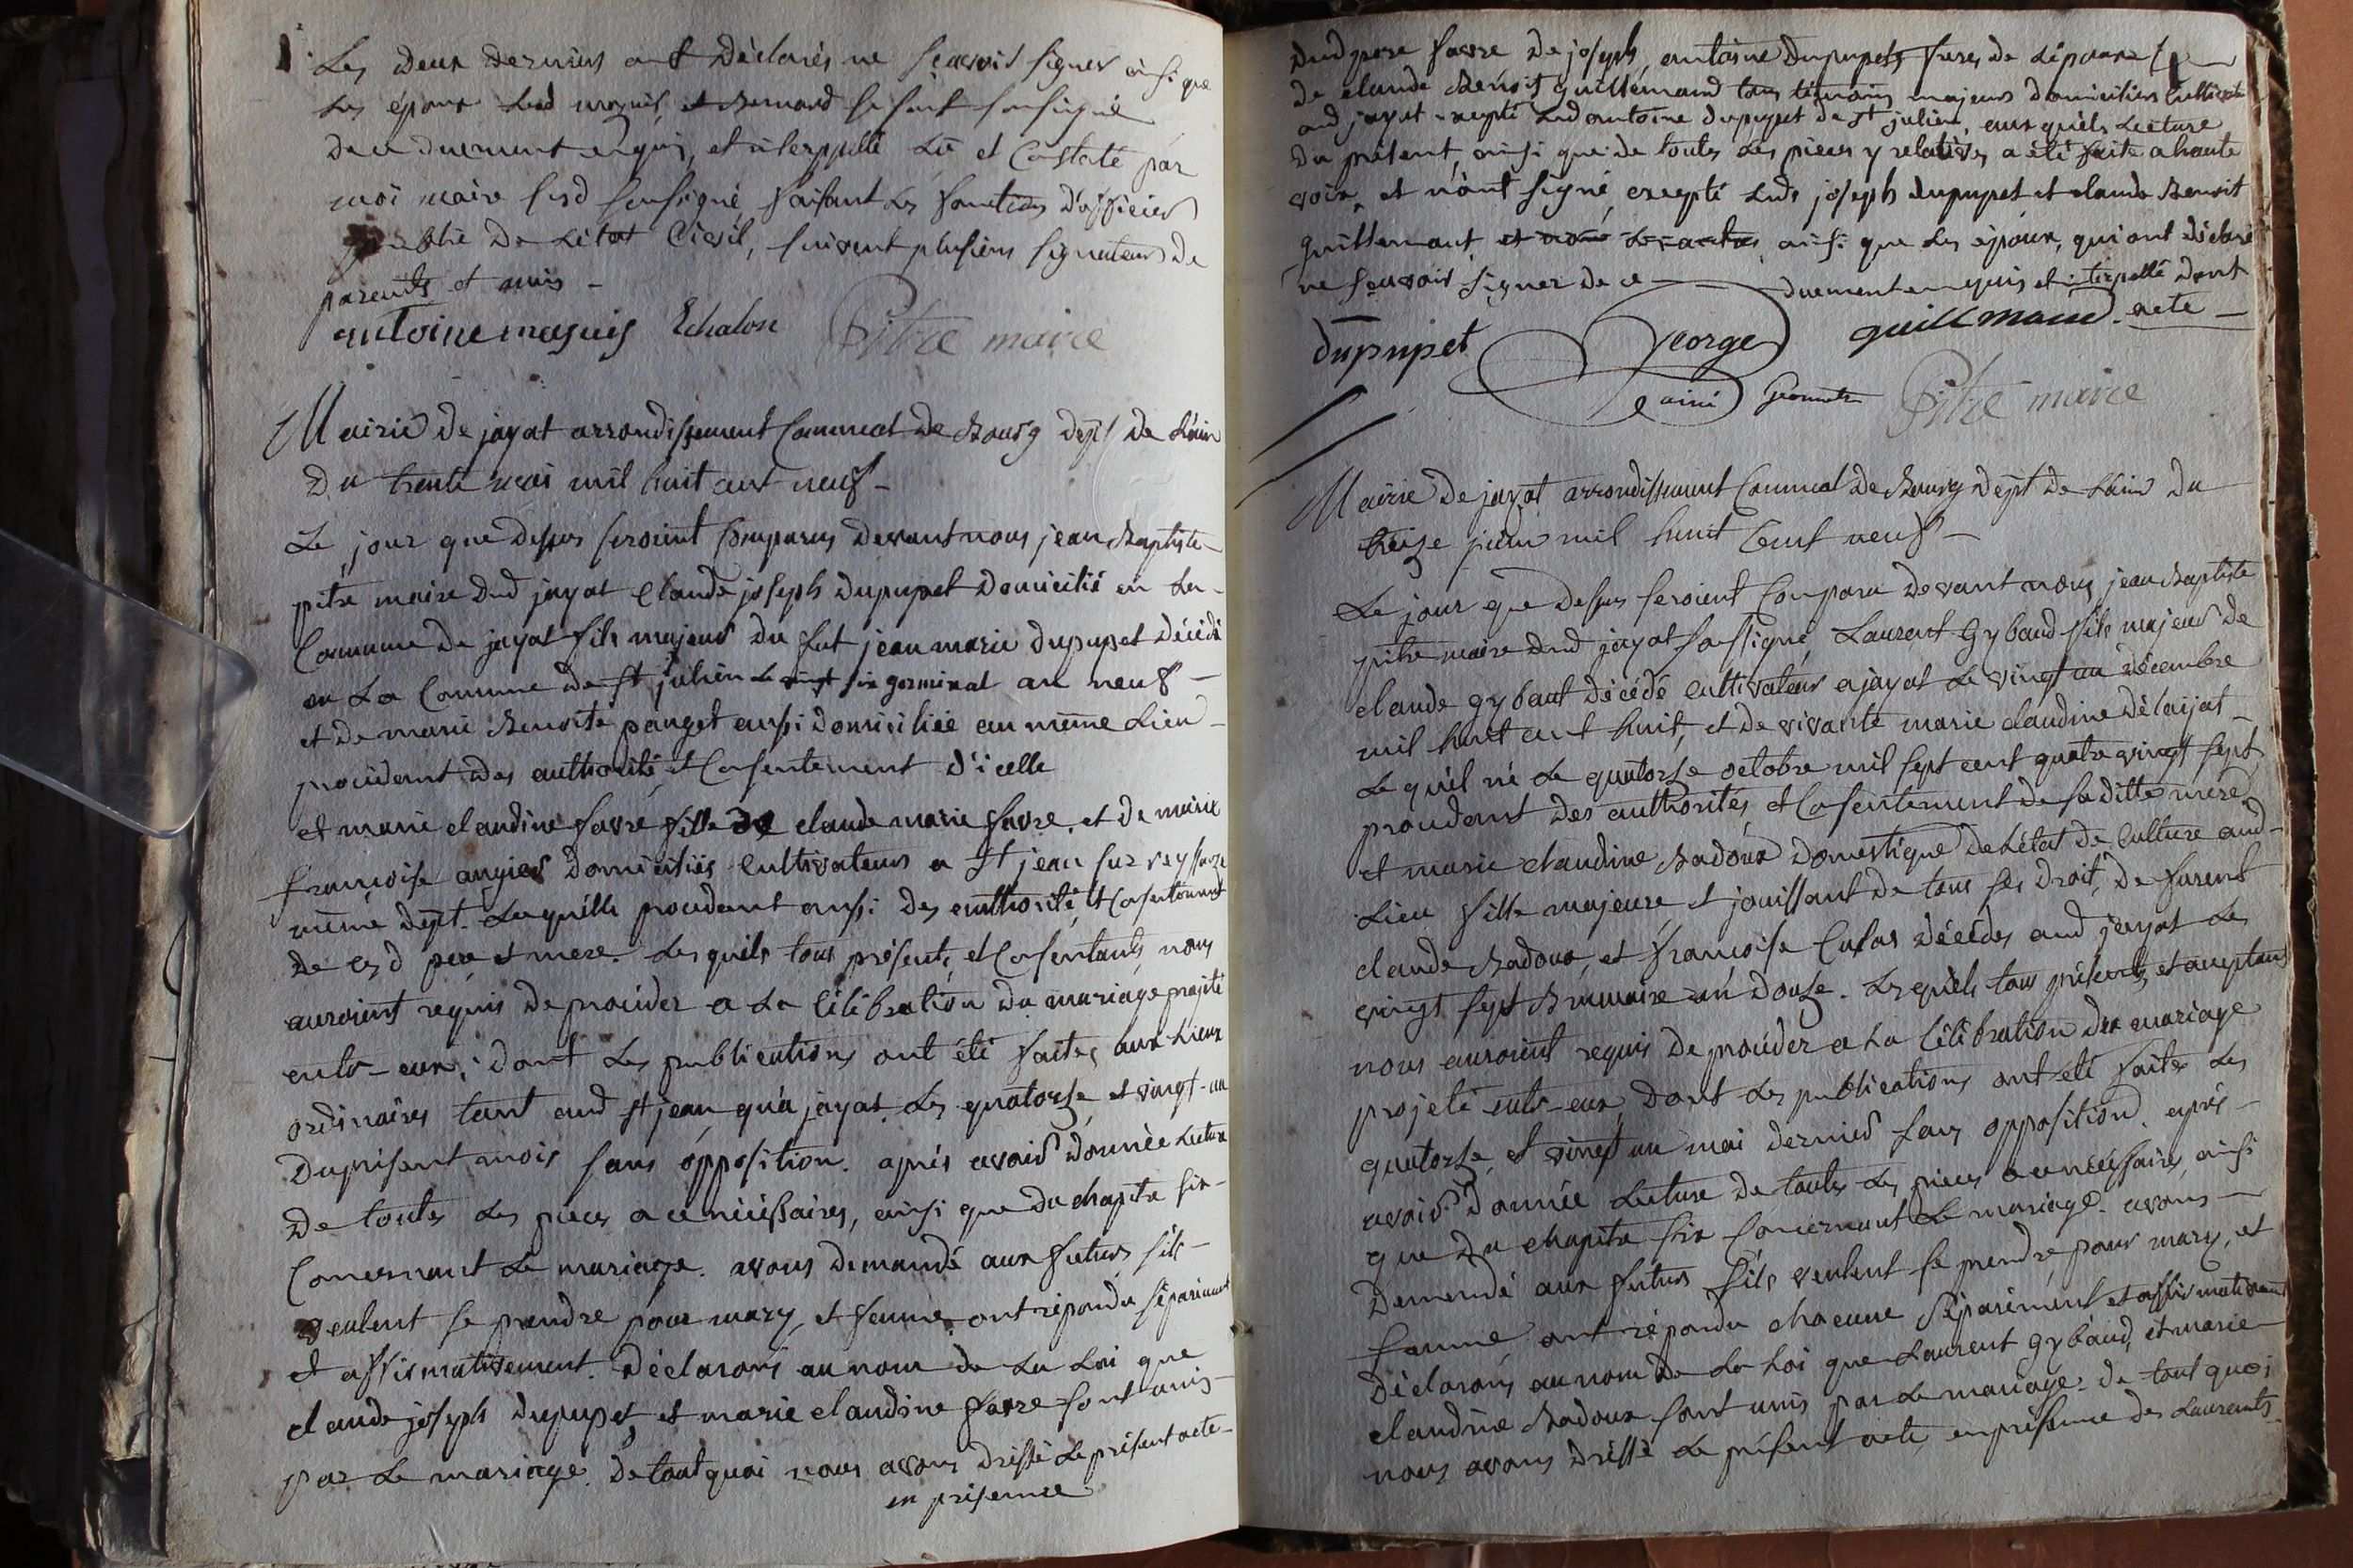 Les deux derniers ont déclarés ne sçavoir signer ainsi que
les époux led masuis et Bernard se sont sousigné
de ce duement enquis, et interppellé Lû et Constaté par
moi maire susd sousigné faisant les fonctions d'officier
public de L'état Civil, suivent plusieurs signatures de
parents et amis -
antoine masuis Echalon Pitre maire
Mairie de jayat arrondissement Communal de Bourg dept de L'ain
Du trente mai mil huit cent neuf -
Le jour que dessus seroient Comparus devant nous jean Baptiste
pitre maire dud jayat Claude joseph Dupupet Domicilié en La
Commune de jayat fils majeur du fut jean marie Dupupet décédé
en La Commune de St julien Le vingt six germinal an neuf -
et de marie Benoite panget aussi domiciliée au même Lieu -
procédant des authorité et Consentement d'icelle
et marie claudine favre fille de claude marie favre, et de marie
françoise angier domiciliés cultivateurs a St jean sur reyssouze
même dept. Laquélle procedant aussi des authorité et Consentement
de ces d pere et mere. Lesquéls tous présents, et Consentants, nous
auroient requis de procéder a La Célébration du mariage projeté
entr-eux; dont Les publications ont été faites aux Lieux
ordinaires tant aud St jean qu'a jayat Les quatorse et vingt-un
Du présent mois sans opposition. après avoir donnée Lecture
De toutes Les pieces a ce nécéssaires, ainsi que du chapitre six -
Concernant Le mariage. avons demandé aux futurs s'ils -
veulent se prendre pour mary, et femme, ont répondu séparément
et affirmativement. Déclarons au nom de La Loi que
claude joseph Dupupet, et marie claudine favre sont unis -
par Le mariage. De tout quoi nous avons dressé Le présent acte -
en présence
Dud pere favre de joseph, antoine Dupupets freres de L'épouse
de claude Benoit guillemaud tous témoins majeurs domiciliers
aud jayat excepté Led antoine dupupet de St julien, auxquéls Lecture
du présent, ainsi que de toutes Les pieces y relatives a été faite a haute
voix, et n'ont signé excepté Leds joseph dupupet et claude Benoit
guillemaut ainsi que Les époux, qui ont déclaré
ne sçavoir signer de ce duement enquis et interpellé dont
acte -
dupupet george guillmaud
Géometre Pitre maire
Mairie de jayat arrondissement Communal de Bourg dept de L'ain du
treize juin mil huit Cent neuf -
Le jour que dessus seroient Comparu devant nous jean Baptiste
pitre maire dud jayat soussigné, Laurent Gybaud fils majeur de
claude gybaut décédé cultivateur a jayat Le vingt un décembre
mil huit cent huit, et de vivante marie claudine délaijat -
Lequél né Le quatorse octobre mil sept cent quatre vingt sept
procedant des authorités, et Consentement de sa ditte mere
et marie claudine Badoux domestique de L'état de Culture aud -
Lieu fille majeure et jouissant de tous ses droit, de furent
claude Badoux, et françoise décédés aud jayat Les
vingt sept Brumaire an douse. Lesquéls tous présents, et acceptans
nous auroient requis de procéder a La Célébration du mariage
projeté entr-eux, dont Les publications ont été faites Les
quatorse, et vingt un mai dernier sans opposition. après -
avoir donnée Lecture de toutes Les pieces a ce nécéssaires, ainsi
que du chapitre six Concernant Le mariage. avons -
Demandé aux futurs s'ils veulent se prendre pour mary, et
femme, ont répondu chacune séparément et affirmativement
Déclarons au nom de La Loi que Laurent gybaud, et marie
claudine Badoux sont unis par Le mariage. De tout quoi
nous avons dréssé Le présent acte en présence des Laurents